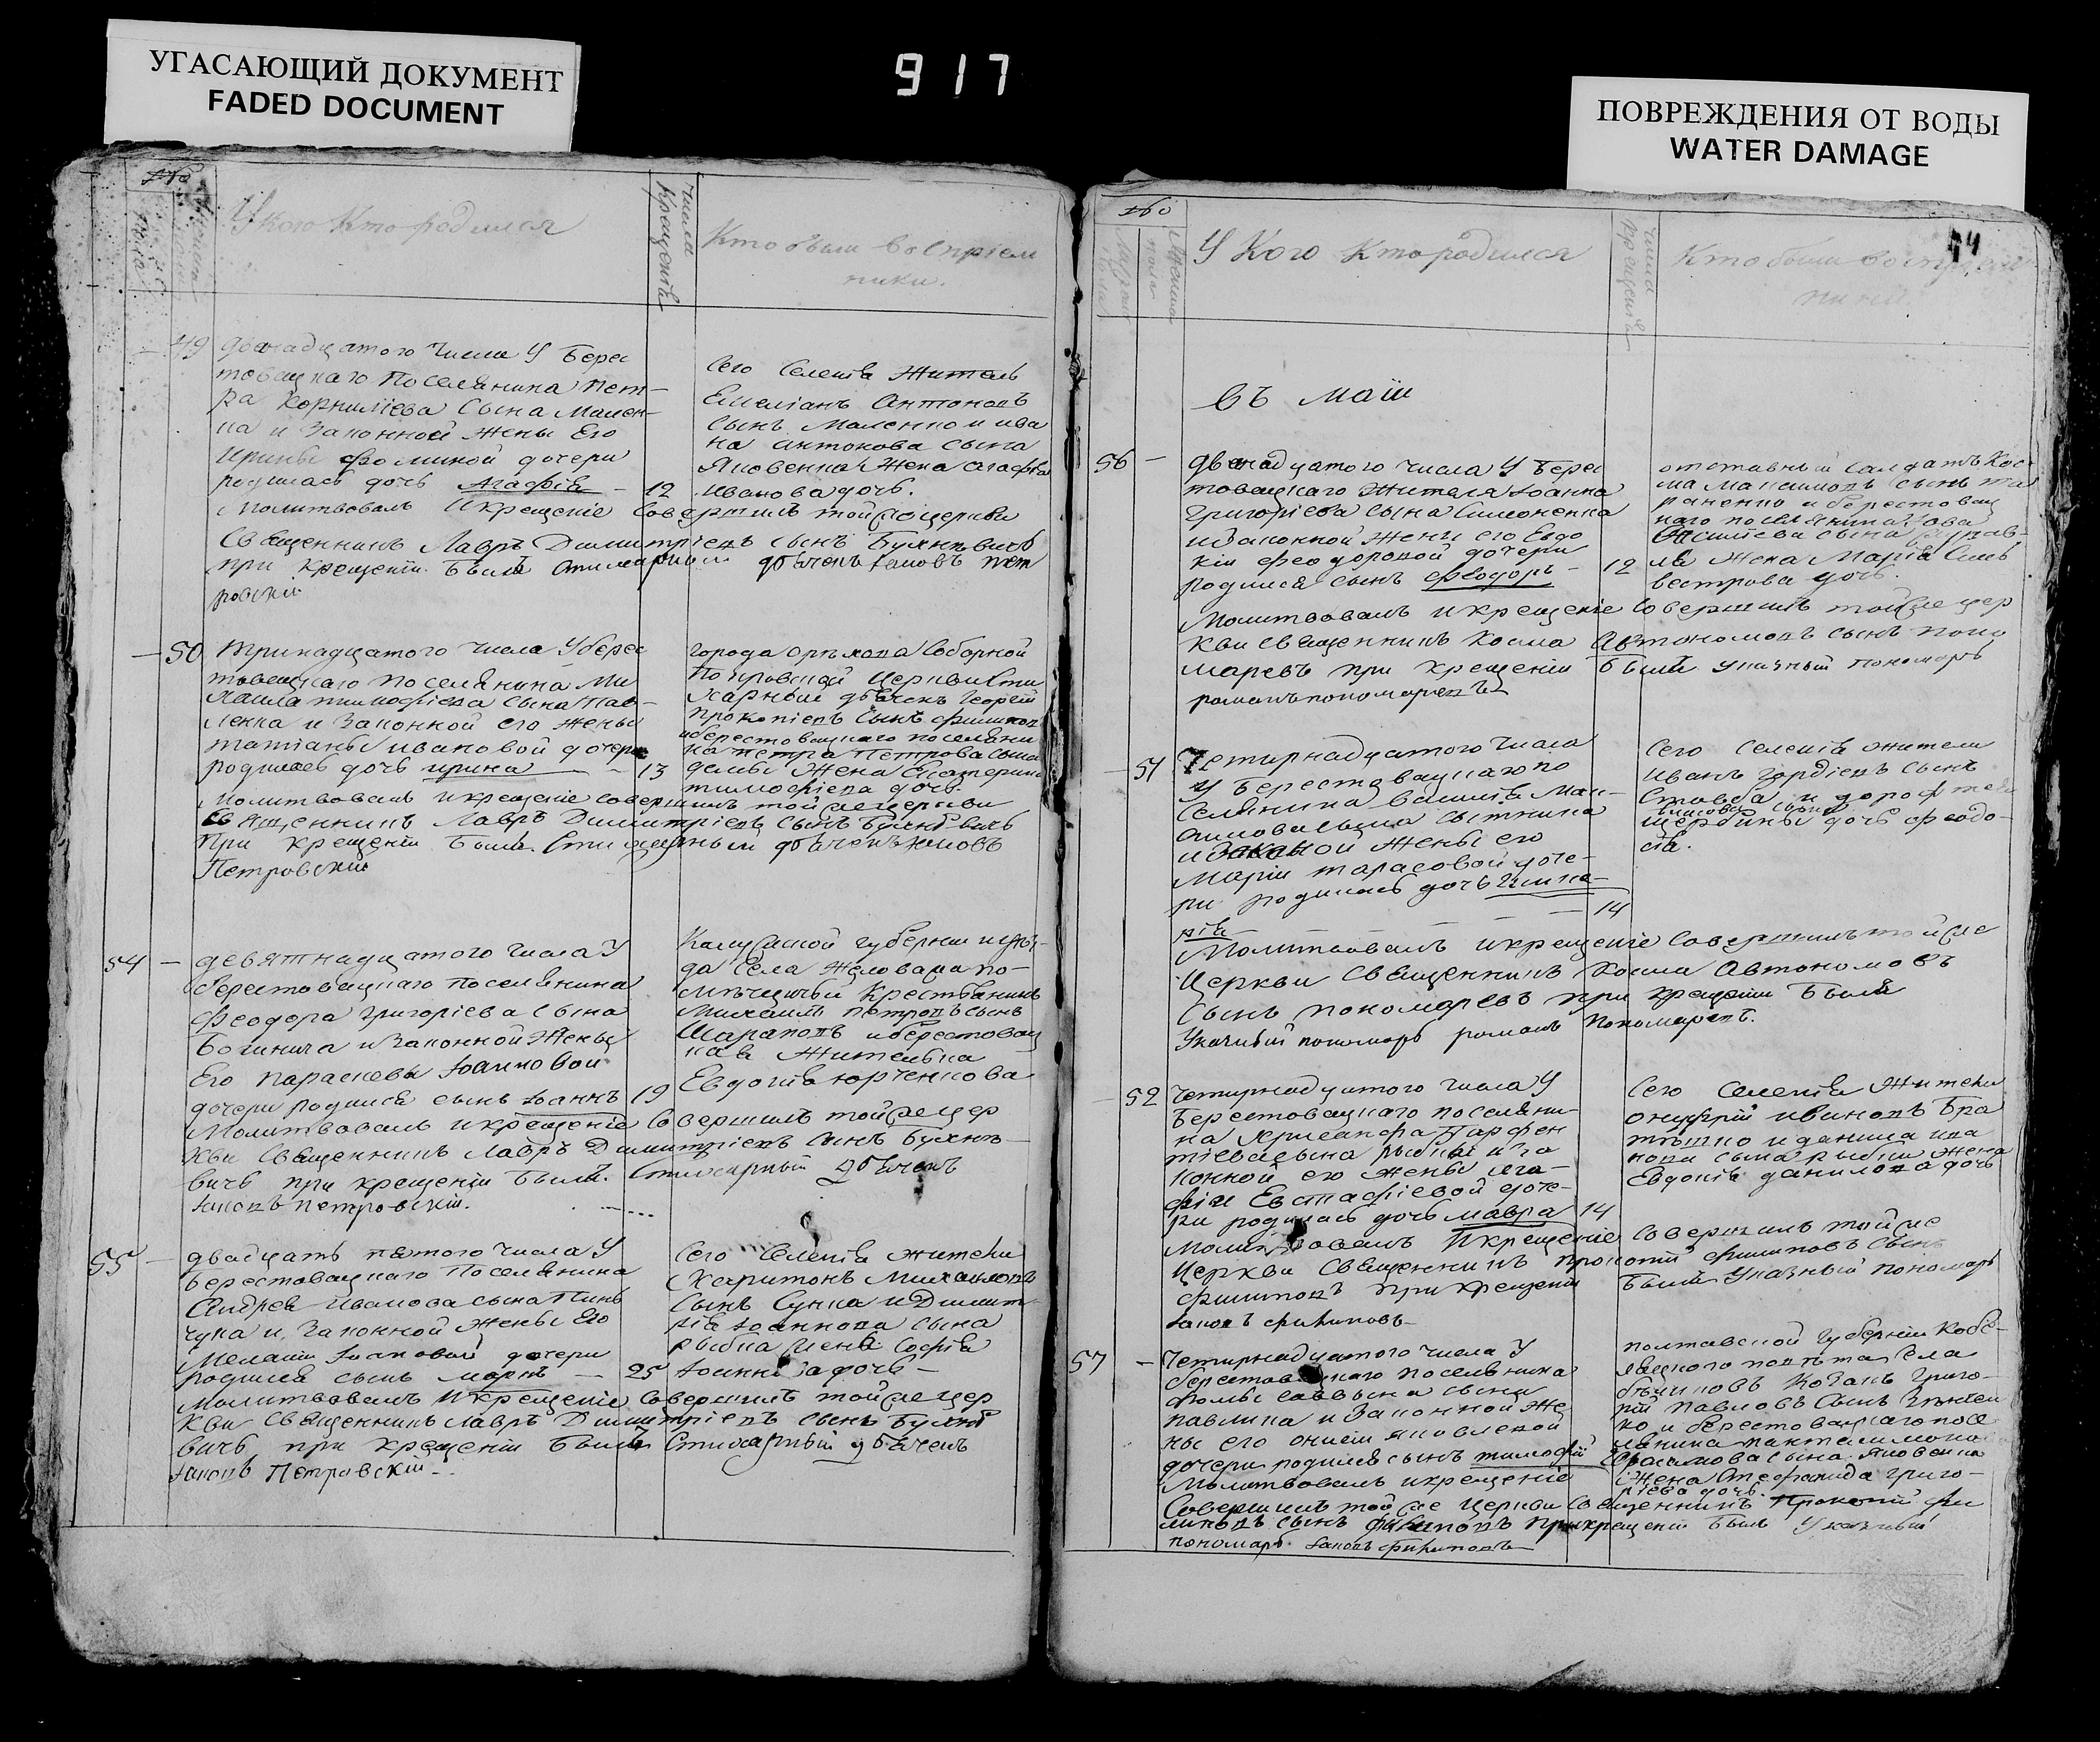 УГАСАЮЩИЙ ДОКУМЕНТ
FADED DOCUMENT
917
ПОВРЕЖДЕНИЯ ОТ ВОДЫ
WATER DAMAGE
У кого кто родился
числа Крещенія
Кто были воспріем
ники.
49
двенадцатого числа У Берес
товецкаго Поселянина Пет-
ра Корнилієва сына Мален-
ка и Законной жены Его
Ирины Фоминой дочери
родилась дочь Агафія - 12
Сего Селенія Житель
Емеліанъ Антоновъ
Сынъ Маленко и ива
на антонова сына
Яковенка Жена агафія
иванова дочь.
Молитвовалъ И крещеніе Совершилъ тойже церкви
Священникъ Лавръ Димитріевъ сынъ
при крещеніи былъ Стихарный дьячекъ Іаковъ Пет
ровскій
50
тринадцатого числа У берес
товецкаго поселянина Ми
хаила тимофіева сына Пав-
ленка и Законной его жены
татіаны ивановой дочери
родилась дочь ирина - 13
города орехова Соборной
Покровской Церкви Сти
харный дьячекъ Георгій
прокопіевъ Сынъ
и берестовецкаго поселяни
на петра Петрова сына
жена Екатерина
тимофіева дочь.
Молитвовалъ и крещеніе совершилъ тойже церкви
Священникъ Лавръ Димитріевъ Сынъ
При крещеніи былъ Стихарный дьячекъ Іаковъ
Петровскій
54
девятнадцатого числа У
берестовецкаго Поселянина
Феодора григоріева сына
и Законной Жены
Его Параскевы Іоанновой
дочери родился сынъ Іоаннъ 19
Калужской губерніи
да Села по-
мѣщичьй Крестьянинъ
Михаилъ петровъ сынъ
Шараповъ и берестовец
кая Жителька
Евдокія юрченкова
Молитвовалъ и крещеніе Совершилъ тойже цер
кви Священникъ Лавръ Димитріевъ Сынъ
вичь при крещеніи былъ. Стихарный дьячекъ
Іаковъ петровскій.
55
двадцать пятого числа У
берестовецкаго Поселянина
Андрея Иванова сына Пин
чука и Законной Жены Его
Меланіи Іоановой дочери
родился сынъ маркъ - 25
Сего Селенія жители
Харитонъ Михаиловъ
Сынъ Сунка и Димит
рія Іоаннова сына
рыбка Жена Софія
дочь -
Молитвовалъ И крещеніе Совершилъ тойже цер
кви Священникъ Лавръ Димитріевъ Сынъ
вичь при крещеніи былъ Стихарный дьячекъ
Іаковъ Петровскій
44
У Кого Кто родился
числа Крещенія
Кто были воспріем
ники
Въ маіи
56
двенадцатого числа У Берес
товецкаго жителя Іоанна
Григоріева сына Симоненка
и Законной Жены его Евдо
кіи Феодоровой дочери
родился сынъ Феодоръ - 12
отставный салдатъ Кос
ма Максимовъ сынъ та
раненко и берестовец
каго поселянина
сына
ля Жена Марія Силь
вестрова дочь.
Молитвовалъ и крещеніе Совершилъ тойже цер
кви Священникъ Косма Автономовъ сынъ поно
маревъ при крещеніи былъ указный пономарь
романъ пономаревъ
51
Четырнадцатого числа
У Берестовецкаго по
селянина василія Мак-
симова сына сытника
и Законной Жены его
Маріи тарасовой доче-
ри родилась дочь Глике-
рія - 14
Сего Селенія жители
Иванъ Гордіевъ сынъ
и дорофтея
щербины дочь феодо-
сія.
Молитвовалъ и крещеніе Совершилъ тойже
Церкви Священникъ Косма Автономовъ
Сынъ пономаревъ при крещеніи былъ
Указный пономарь романъ Пономаревъ.
52
четырнадцатого числа У
Берестовецкаго поселяни-
на Александра Парфен
тіева сына рыбки и За
конной его жены Ага-
фіи Евстафіевой доче-
ри родилась дочь мавра 14
Сего Селенія Жители
онуфрій ивановъ Бра
тышко и данила ива
нова сына рыбки жена
Евдокія данилова дочь
Молитвовалъ И крещеніе Совершилъ тойже
Церкви Священникъ прокопій филиповъ сынъ
филиповъ при крещеніи былъ Указный пономарь
Іаковъ филиповъ
57
Четырнадцатого числа У
берестовецкаго поселянина
Фомы саввына сына
павлика и Законной же
ны его онисіи яковлевой
дочери родился сынъ тимофій
полтавской губерніи Кобе-
ляцкого повѣта Села
Козакъ Григо-
рій Павловъ Сынъ
ко и берестовецкаго посе
лянина пантелимона
сына Яковенка
Жена Стефанида григо-
ріева дочь.
Молитвовалъ и крещеніе
Совершилъ тойже Церкви Священникъ Прокопій фи
липовъ сынъ филиповъ при крещеніи былъ Указный
пономарь Іаковъ филиповъ